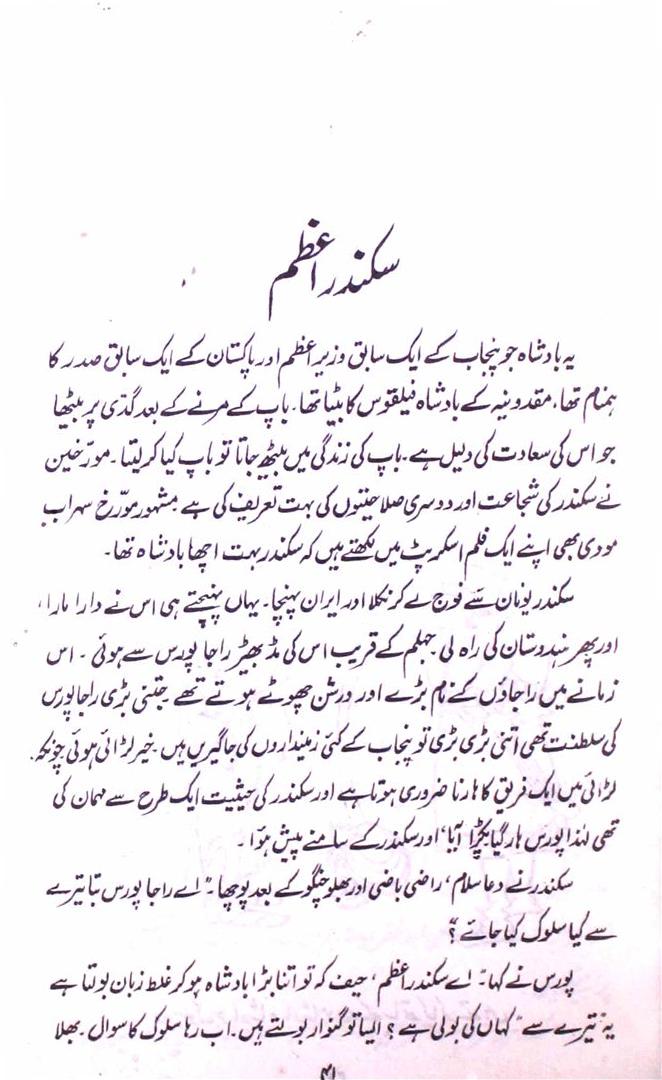 سکندر اعظم
یہ بادشاہ جو پنجاب کے ایک سابق وزیر اعظم اور پاکستان کے ایک سابق صدر کا
ہمنام تھا، مقدونیہ کے بادشاہ فیلقوس کا بیٹا تھا۔ باپ کے مرنے کے بعد گدّی پر بیٹھا
جو اس کی سعادت کی دلیل ہے۔ باپ کی زندگی میں بیٹھ جاتا تو باپ کیا کر لیتا۔ مورّخین
نے سکندر کی شجاعت اور دوسری صلاحیتوں کی بہت تعریف کی ہے۔ مشہور مورّخ سہراب
مودی بھی اپنے ایک فلم اسکرپٹ میں لکھتے ہیں کہ سکندر بہت اچھا بادشاہ تھا۔
سکندر یونان سے فوج لے کر نکلا اور ایران پہنچا۔ یہاں پہنچتے ہی اس نے دارا مارا،
اور پھر ہندوستان کی راہ لی جہلم کے قریب اس کی مڈبھیڑ راجا پورس سے ہوئی۔ اس
زمانے میں راجاؤں کے نام بڑے اور درشن چھوٹے ہوتے تھے جتنی بڑی راجا پورس
کی سلطنت تھی اتنی بڑی بڑی تو پنجاب کے کئی زمینداروں کی جاگیریں ہیں۔ خیر لڑائی ہوئی چونکہ
لڑائی میں ایک فریق کا ہارنا ضروری ہوتا ہے اور سکندر کی حیثیت ایک طرح سے مہمان کی
تھی لہٰذا پورس ہار گیا پکڑا آیا، اور سکندر کے سامنے پیش ہوا۔
سکندر نے دعا سلام، راضی باضی اور بھلو چنگو کے بعد پوچھا۔ "اے راجا پورس بتا تیرے
سے کیا سلوک کیا جائے؟"
پورس نے کہا۔ "اے سکندر اعظم، حیف کہ تو اتنا بڑا بادشاہ ہو کر غلط زبان بولتا ہے
یہ "تیرے سے" کہاں کی بولی ہے؟ ایسا تو گنوار بولتے ہیں۔ اب رہا سلوک کا سوال۔ بھلا
۴۱